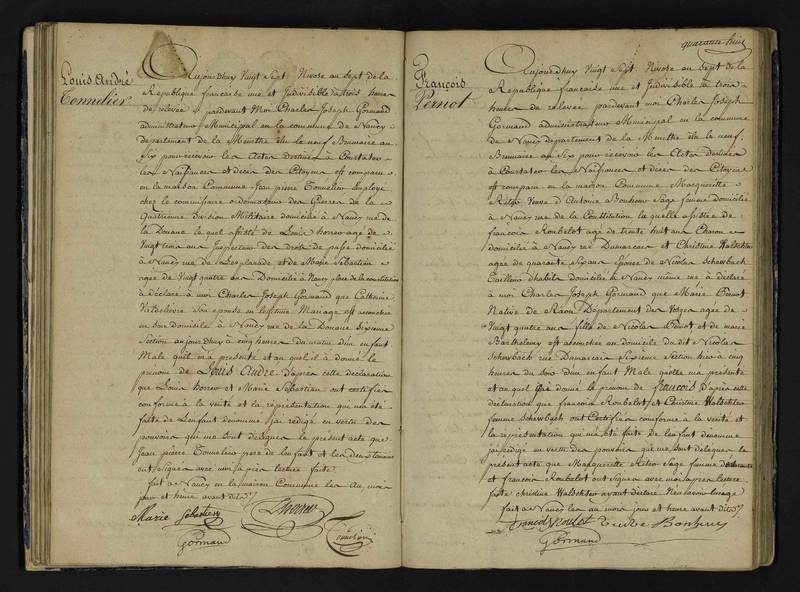 Louis André
Tonnelier
Aujourdhuy Vingt Sept Nivose an sept de la
Republique francaise une et Indivisible à trois heures
de relevée pardevant Moi Charles Joseph Gormand
administrateur Municipal en la commune de Nancy
departement de la Meurthe élu le neuf Brumaire an
Six pour recevoir les Actes destinés à Constater
les Naissances et décès des Citoyens est comparu
en la maison Commune Jean pierre Tonnelier Employé
chez le commissaire ordonnateur des Guerres de la
Division Militaire domicilié à Nancy rue de
la Douane le quel assisté de Louis horrer agé de
Vingt ans Inspecteur des droits de passe domicilié
à Nancy rue de Lesplanade et de Marie Sebastien
agée de Vingt quatre ans Domicilié à Nancy place de la constitution
à déclaré à moi Charles Joseph Gormand que Catherine
son epouse en legitime Mariage est accouchée
en son domicile à Nancy rue de la Douane Sixieme
Section aujourdhuy à cinq heures du matin d'un enfant
Male quil m'a presenté et au quel il a donné le
prenom de Louis André. D'après cette déclaration
que Louis horrer et Marie Sebastien ont certifiée
conforme à la verité et la réprésentation qui ma été
faite de Lenfant denommé j'ai redigé en vertu des
pouvoirs qui me sont délégués le present acte que
Jean pierre Tonnelier pere de lenfant et les deux temoins
ont signés avec moi après lecture faite
fait à Nancy en la maison Commune les An, mois
jour et heure avant dits
Marie Sébastien
Tonnelier
Gormand
quarante huit
François
Pernot
Aujourdhuy Vingt Sept Nivose an sept de la
Republique française une et Indivisible à trois
heures de relevée pardevant moi Charles Joseph
Gormand administrateur Municipal en la commune
de Nancy département de la Meurthe élu le neuf
Brumaire an Six pour récevoir les Actes destinés
à Constater les Naissances et décès des Citoyens
est comparu en la maison Commune Marguerithe
Veuve d'Antoine Bonheur Sage femme domicilié
à Nancy rue de la Constitution la quelle assistée de
francois Roubelot agé de trente huit ans
domicilié à Nancy rue Damascain et Christine Halschter
agée de quarante Six ans Epouse de Nicolas Schewbach
Tailleur dhabits domicilié à Nancy même rue à déclaré
à moi Charles Joseph Gormand que Marie Pernot
Native de Raon Département des Vosges agée de
Vingt quatre ans fille de Nicolas Pernot et de marie
Barthelemy est accouchée au domicile du dit Nicolas
Schewbach rue Damascain Sixième Section hier à cinq
heures du soir D'un enfant Male quelle ma présenté
et au quel elle a donné le prenom de François D'après cette
déclaration que francois Roubelot et Christine Halschter
femme schewbach ont Certifiée conforme à la verité et
la représentation qui m'a été faite de lenfant dénommé
jai redigé en vertu des pouvoirs qui me sont delegués le
présent acte que Marguerite Sage femme déclarante
et francois Roubelot ont signés avec moi après lecture
faite christine Halschter ayant declaré Nen savoir lusage
fait à Nancy les an mois jour et heure avant dits
Gormand